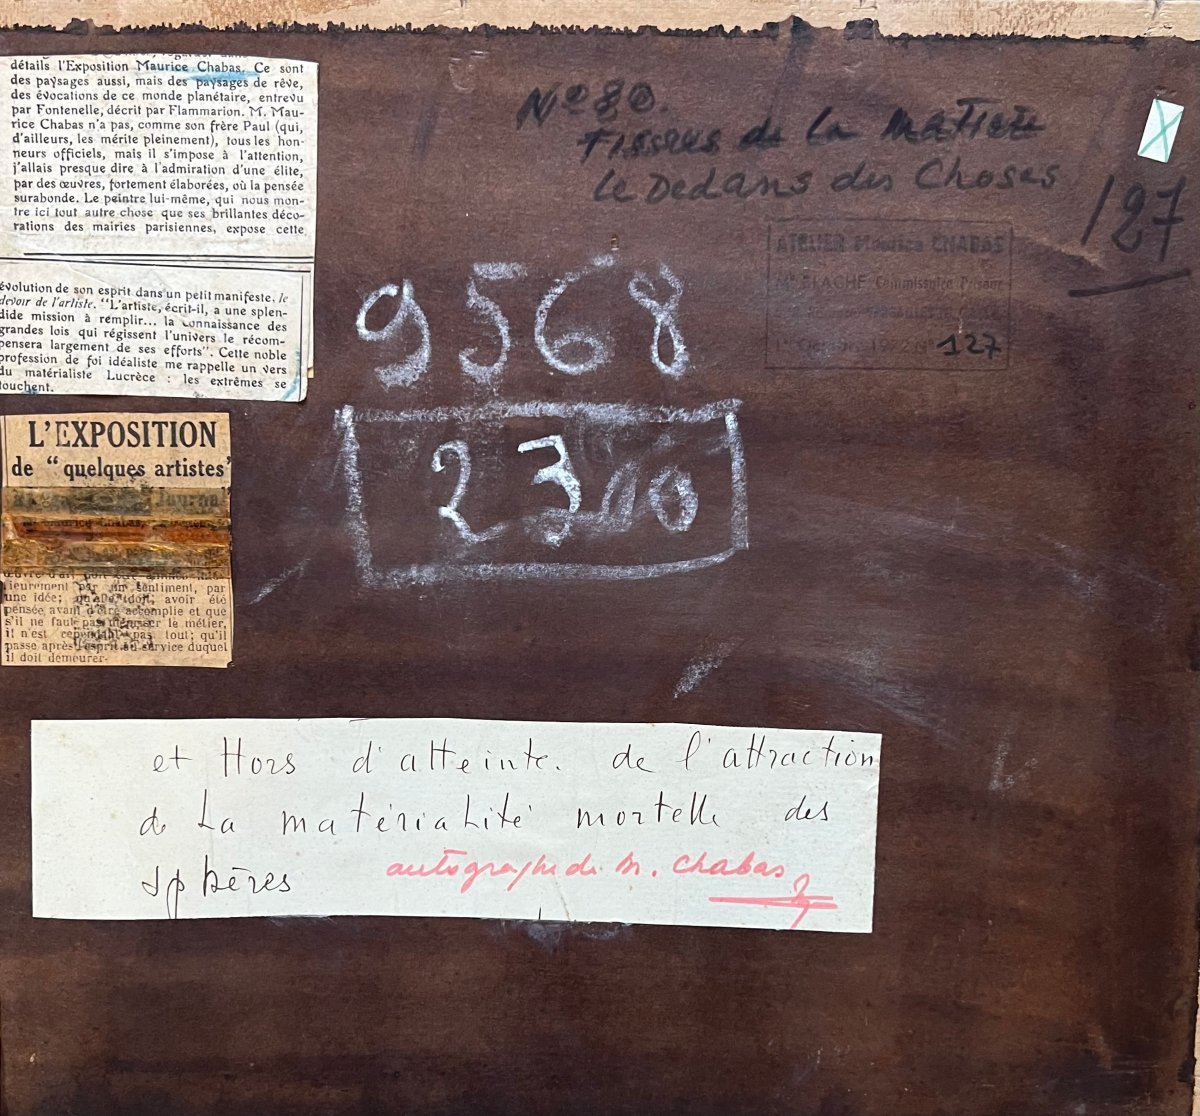 détails l'Exposition Maurice Chabas. Ce sont
des paysages aussi, mais des paysages de rêve,
des évocations de ce monde planétaire, entrevu
par Fontenelle, décrit par Flammarion. M. Mau-
rice Chabas n'a pas, comme son frère Paul (qui,
d'ailleurs, les mérite pleinement), tous les hon-
neurs officiels, mais il s'impose à l'attention,
j'allais presque dire à l'admiration d'une élite,
par des œuvres, fortement élaborées, où la pensée
surabonde. Le peintre lui-même, qui nous mon-
tre ici tout autre chose que ses brillantes déco-
rations des mairies parisiennes, expose cette
évolution de son esprit dans un petit manifeste, le
devoir de l'artiste. "L'artiste, écrit-il, a une splen-
dide mission à remplir... la connaissance des
grandes lois qui régissent l'univers le récom-
pensera largement de ses efforts". Cette noble
profession de foi idéaliste me rappelle un vers
du matérialiste Lucrèce : les extrêmes se
touchent.
L'EXPOSITION
de "quelques artistes"
Journal"
Maurice Chabas,
lieurement par un sentiment, par
une idée; qu'elle doit avoir été
pensée avant d'être accomplie et que
s'il ne faut pas mépriser le métier,
il n'est cependant pas tout; qu'il
passe après l'esprit au service duquel
il doit demeurer.
No 80.
Tissus de La Matière
Le Dedans des Choses
127
ATELIER Maurice CHABAS
BLACHE Commissaire Priseur
127
9568
23 10
et Hors d'atteinte. de l'attraction
de La matérialité mortelle des
sphères
autographe de M. Chabas